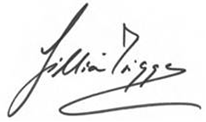 Gillian Triggs